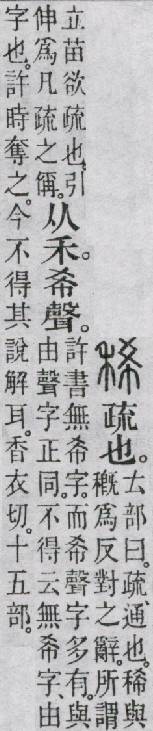 稀 疏也。𠫓部曰。疏、通也。稀與
穊爲反對之辭。所謂
立苗欲疏也。引
伸爲凡疏之偁。
从禾。希聲。
許書無希字。而希聲字多有。與
由聲字正同。不得云無希字、由
字也。許時奪之。今不得其說解耳。香衣切。十五部。